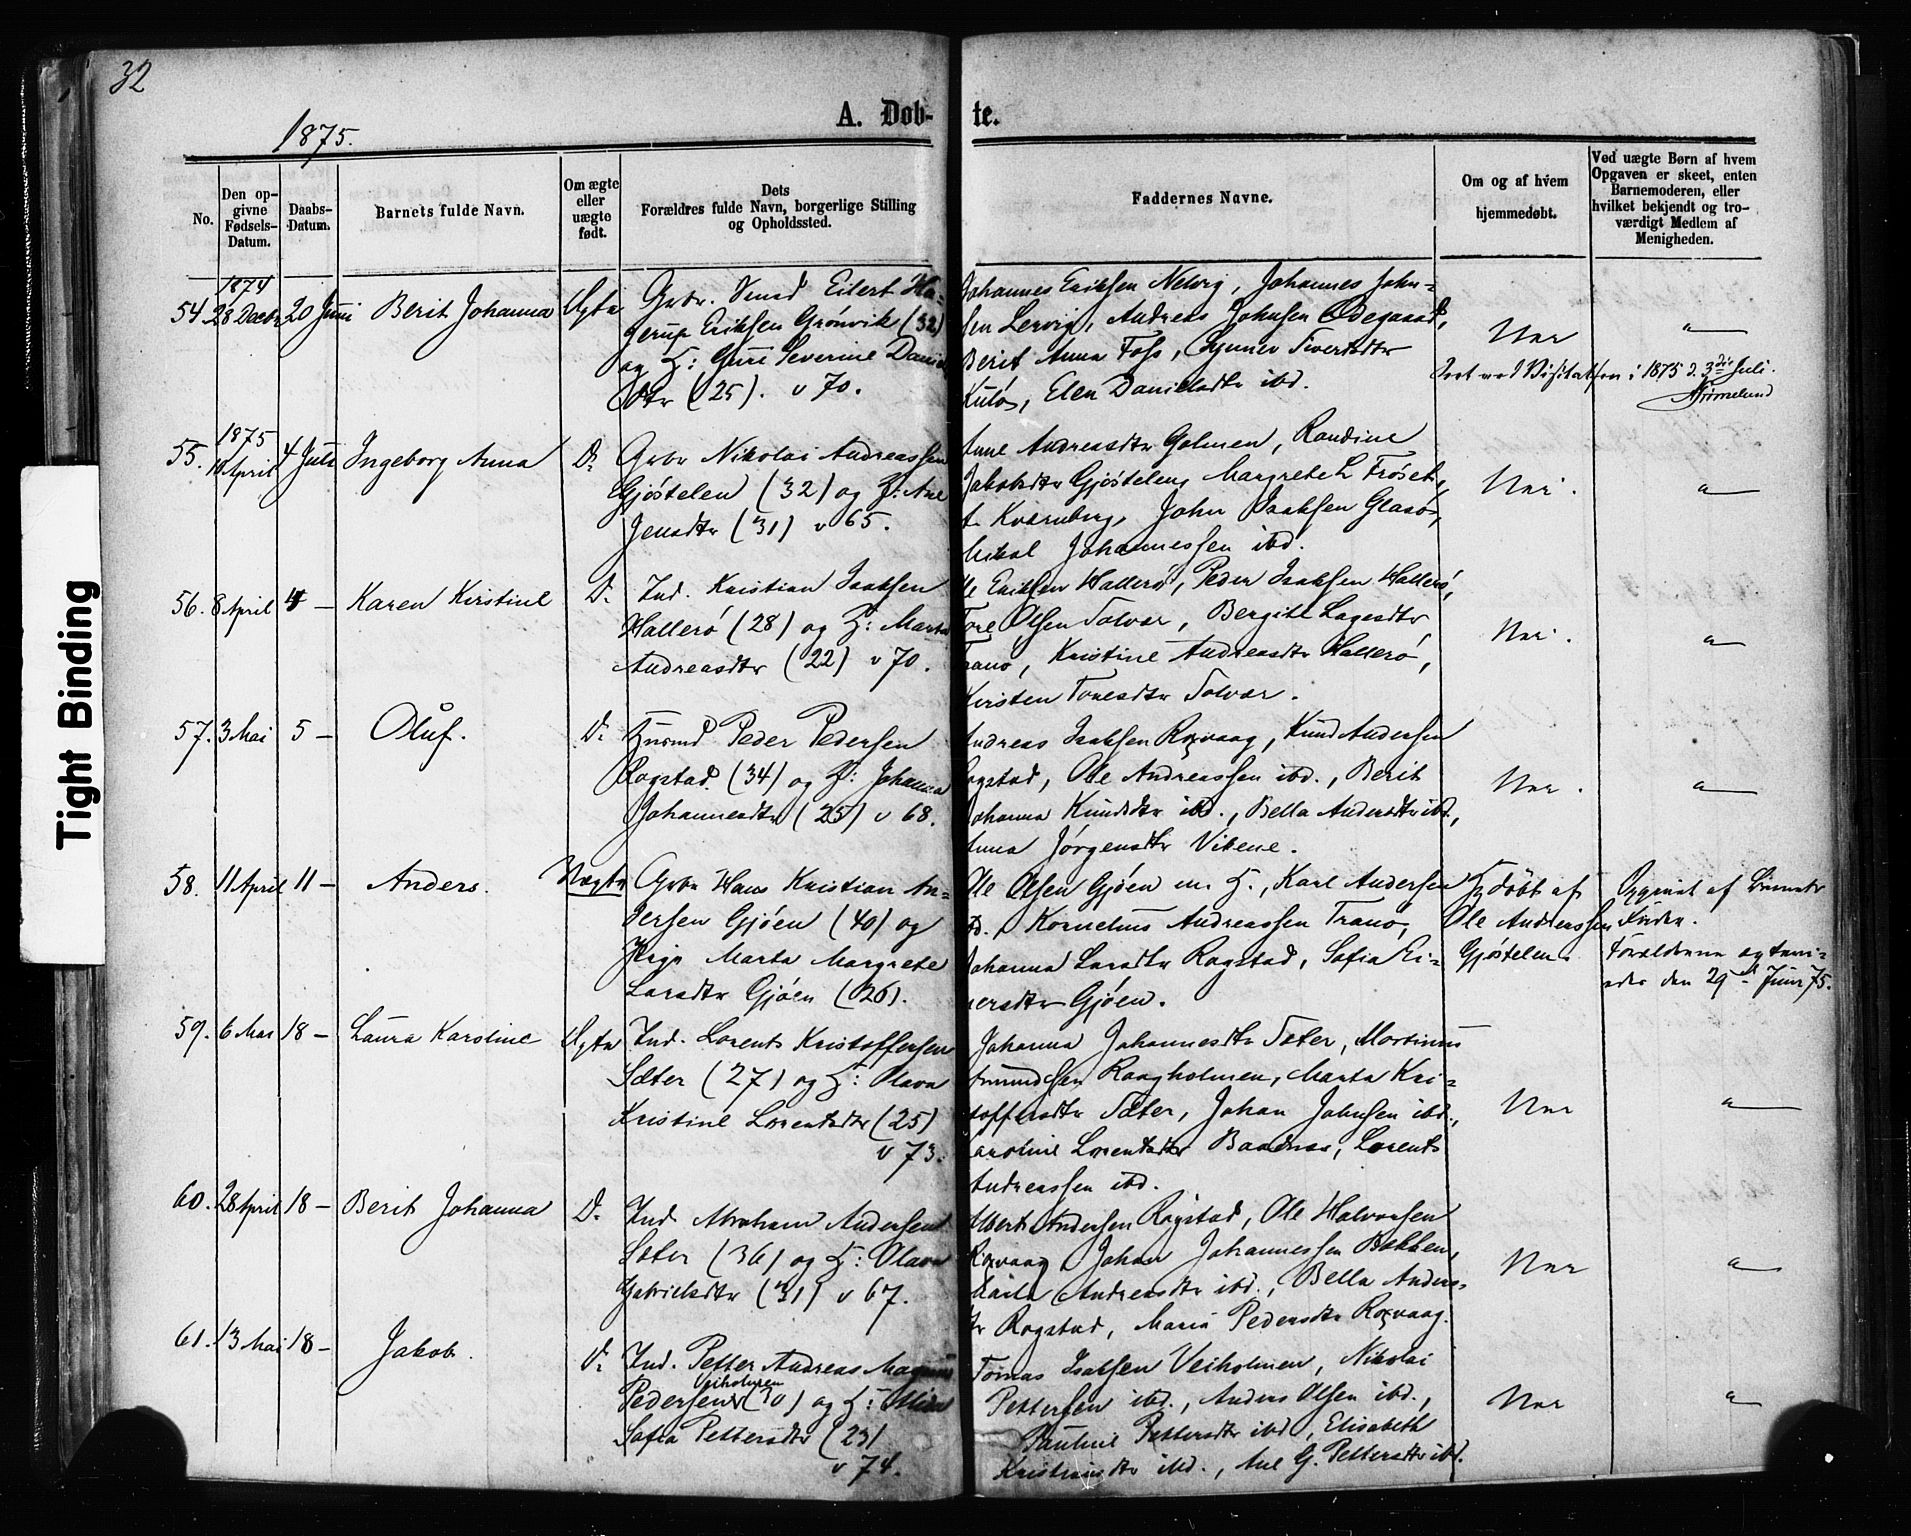 32
A. Døb-te.
1875.
No.
Den op-
givne
Fødsels-
Datum.
Daabs-
Datum.
Barnets fulde Navn.
Om ægte
eller
uægte
født.
Dets
Forældres fulde Navn, borgerlige Stilling
og Opholdssted.
Faddernes Navne.
Om og af hvem
hjemmedøbt.
Ved uægte Børn af hvem
Opgaven er skeet, enten
Barnemoderen, eller
hvilket bekjendt og tro-
værdigt Medlem af
Menigheden.
54. 1874 28 Decbr 20 Juni Berit Johanna Ægte
Eilert Ha-
gerup Eriksen Grönvik (32)
og H: Guri Severine Daniels
dtr (25). v 70.
Johannes Eriksen Nelvig, Johannes John-
sen Lervig, Andreas Johnsen Ødegaard,
Berit Anna Foss, Synnev Sivertsdtr
Kulø, Elen Danielsdtr ibd.
Nei "
Seet ved Visitatsen i 1875 d. 3die Juli.
55. 1875 10 April 4 Juli Ingeborg Anna D.
Gbr Nikolai Andreassen
Gjöstelen (32) og H: Ane
Jensdtr (31) v 65.
Anne Andreasdtr Holmen, Randine
Jakobsdtr Gjöstelen, Margrete L Fröset,
Kværnberg, John Isaksen Glasö,
Mikal Johannessen ibd.
Nei. "
56. 8 April 4 — Karen Kirstine D.
Ind. Kristian Isaksen
Hallerö (28) og H: Marta
Andreasdtr (22) v 70.
Ole Eriksen Hallerö, Peder Isaksen Hallerö,
Tore Olsen Solvær, Bergite Lagesdtr
Tranö, Kristine Andreasdtr Hallerö,
Kirsten Toresdtr Solvær.
Nei. "
57. 3 Mai 5 — Oluf. D.
Husmd Peder Pedersen
Rogstad (34) og H: Johanna
Johannesdtr (25) v 68.
Andreas Isaksen Roxvaag, Knud Andersen
Rogstad, Ole Andreassen ibd., Berit
Johanna Knudsdtr ibd., Bella Andersdtr ibd,
Anna Jörgensdtr Vikene.
Nei. "
58. 11 April 11 — Anders. Uægte
Gbr Hans Kristian An-
dersen Gjöen (40) og
Pige Marta Margrete
Larsdtr Gjöen (26).
Ole Olsen Gjöen m. H., Karl Andersen
ibd. Kornelius Andreassen Tranö,
Johanna Larsdtr Rogstad, Sofia Ei-
nersdtr Gjöen.
Hjdöbt af
Ole Andreassen
Gjöstelen.
Opgivet af Barnets
Fader.
Forældrene agtevi-
edes den 29de Juni 75.
59. 6 Mai 18 — Laura Karoline Ægte
Ind. Lorents Kristoffersen
Sæter (27) og H: Olava
Kristine Lorentsdtr (25)
v 73.
Johanna Johannesdtr Sæter, Martinus
Amundsen Raagholmen, Marta Kri-
stoffersdtr Sæter, Johan Johnsen ibd.,
Karoline Lorentsdtr Baadnes, Lorents
Andreassen ibd.
Nei "
60. 28 April 18 — Berit Johanna D.
Ind Abraham Andersen
Sæter (36) og H: Olava
Gabrielsdtr (31) v 67.
Albert Andersen Rogstad, Ole Halvorsen
Roxvaag, Johan Johannessen Bakken,
Andreasdtr ibd., Bella Anders-
dtr Rogstad, Marie Pedersdtr Roxvaag.
Nei "
61. 13 Mai 18 — Jakob. D.
Ind. Petter Andreas Magnus
Veiholmen
Pedersen og H:
Sofia Pettersdtr (23)
v 74.
Tomas Isaksen Veiholmen, Nikolai
Pettersen ibd., Anders Olsen ibd.,
Pauline Pettersdtr ibd, Elisabeth
Kristiansdtr ibd., Ane G. Pettersdtr ibd.
Nei "
Tight Binding